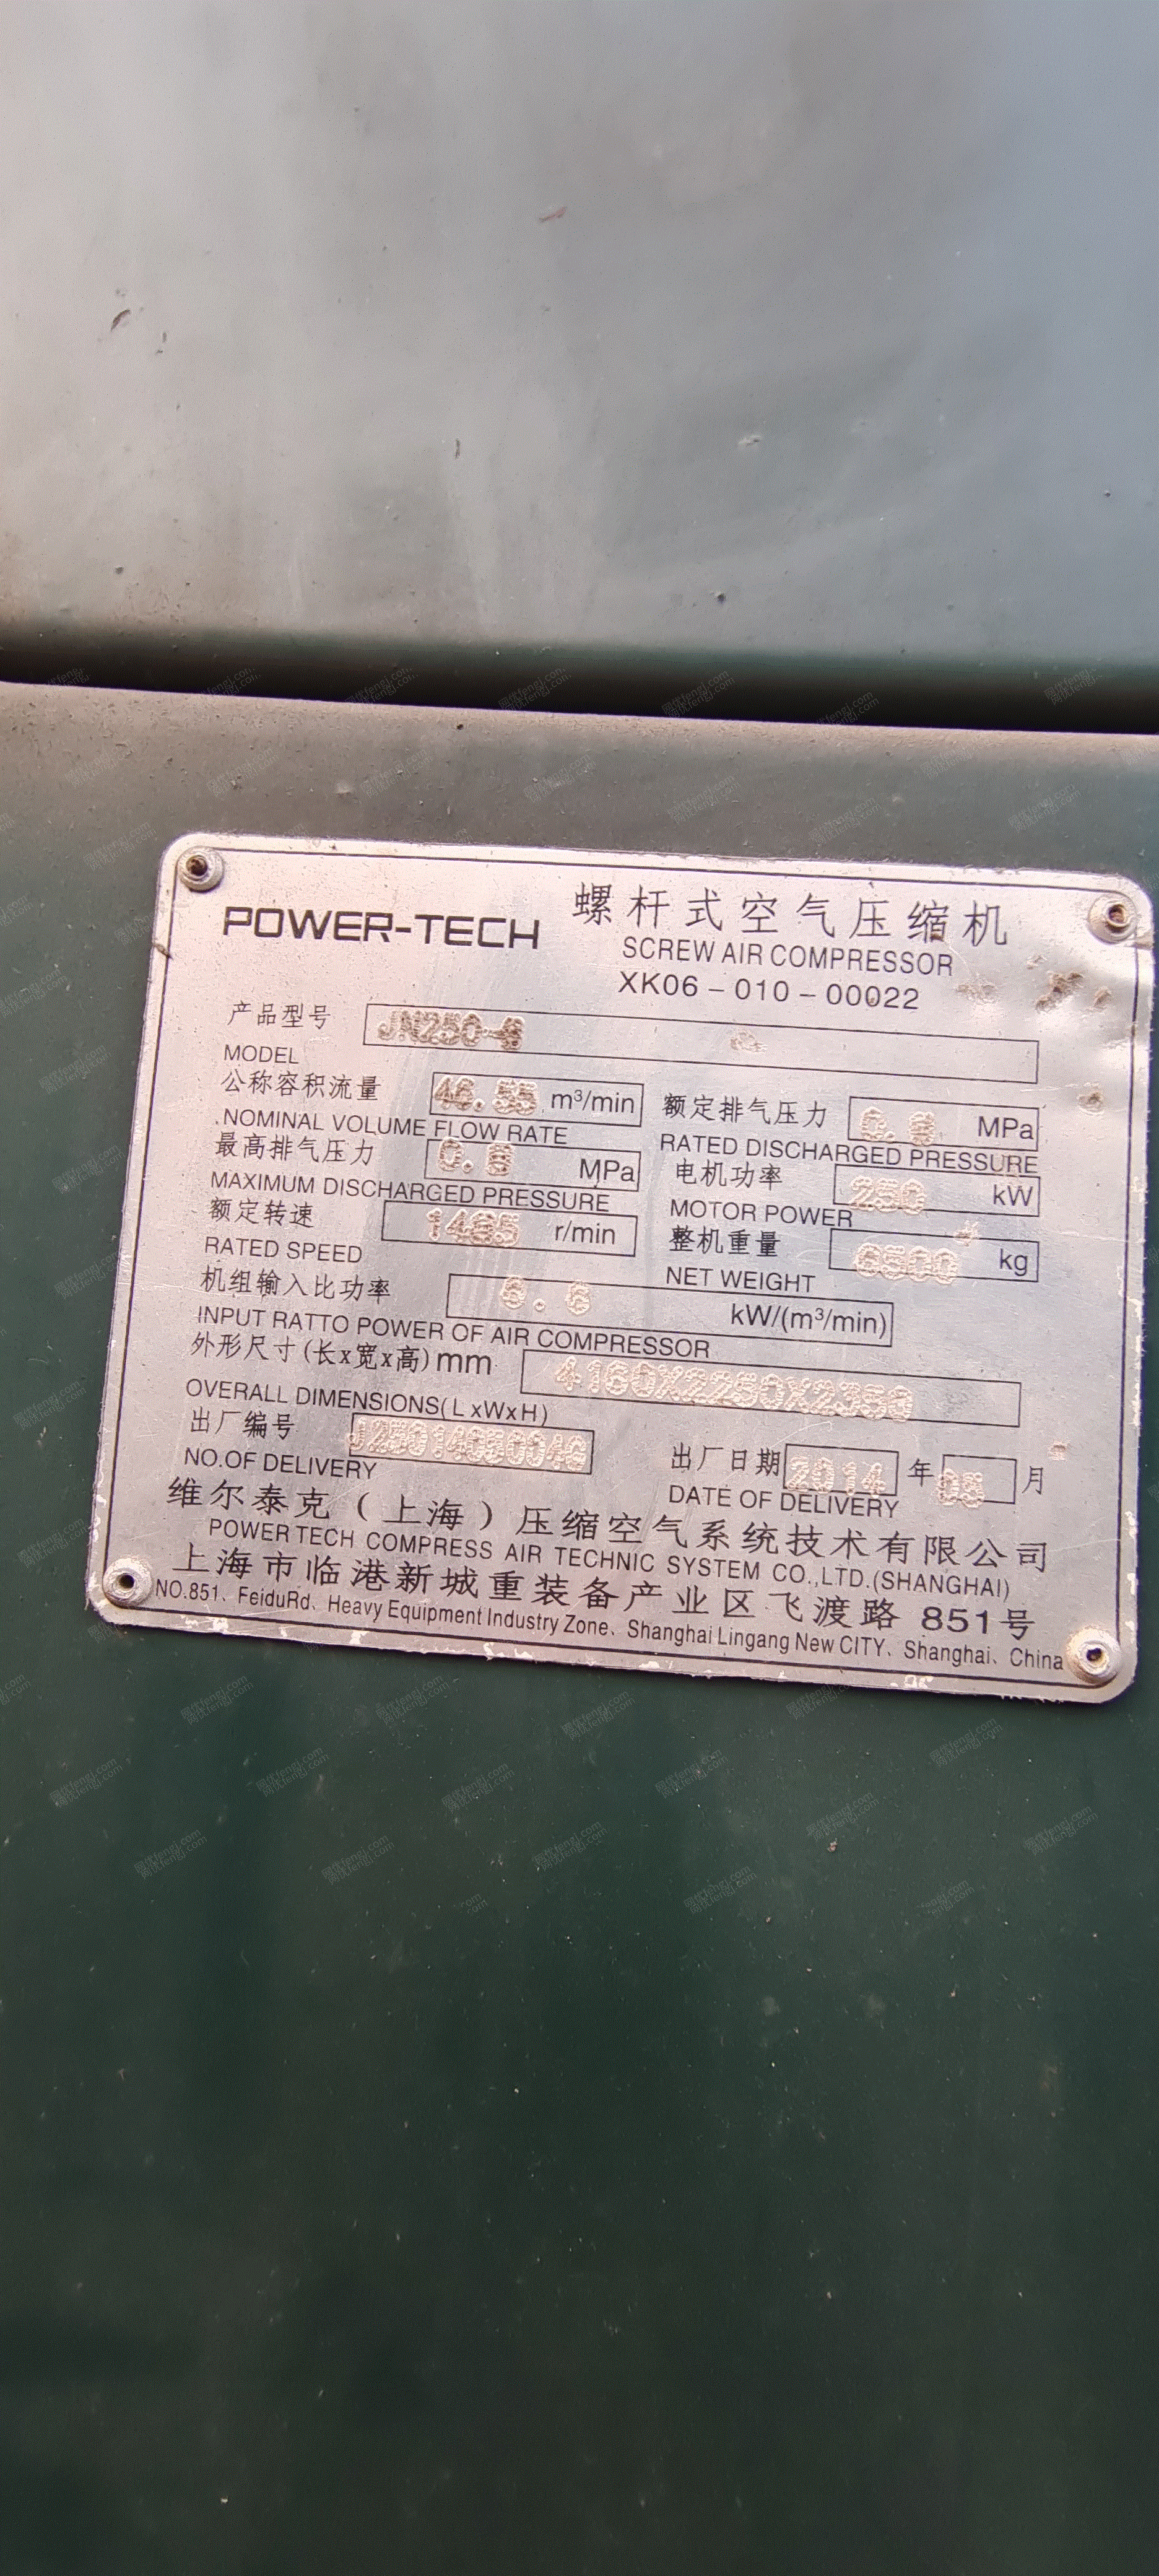 POWER-TECH 螺杆式空气压缩机
SCREW AIR COMPRESSOR
XK06-010-00022
产品型号 JN250-8
MODEL
公称容积流量 46.55 m³/min 额定排气压力 0.8 MPa
NOMINAL VOLUME FLOW RATE RATED DISCHARGED PRESSURE
最高排气压力 0.8 MPa 电机功率 250 kW
MAXIMUM DISCHARGED PRESSURE MOTOR POWER
额定转速 1485 r/min 整机重量 6500 kg
RATED SPEED NET WEIGHT
机组输入比功率 6.6 kW/(m³/min)
INPUT RATTO POWER OF AIR COMPRESSOR
外形尺寸(长x宽x高)mm
OVERALL DIMENSIONS(LxWxH)
出厂编号 出厂日期 2014 年 05 月
NO.OF DELIVERY DATE OF DELIVERY
维尔泰克（上海）压缩空气系统技术有限公司
POWER TECH COMPRESS AIR TECHNIC SYSTEM CO.,LTD.(SHANGHAI)
上海市临港新城重装备产业区飞渡路 851号
NO.851、FeiduRd、Heavy Equipment Industry Zone、Shanghai Lingang New CITY、Shanghai、China